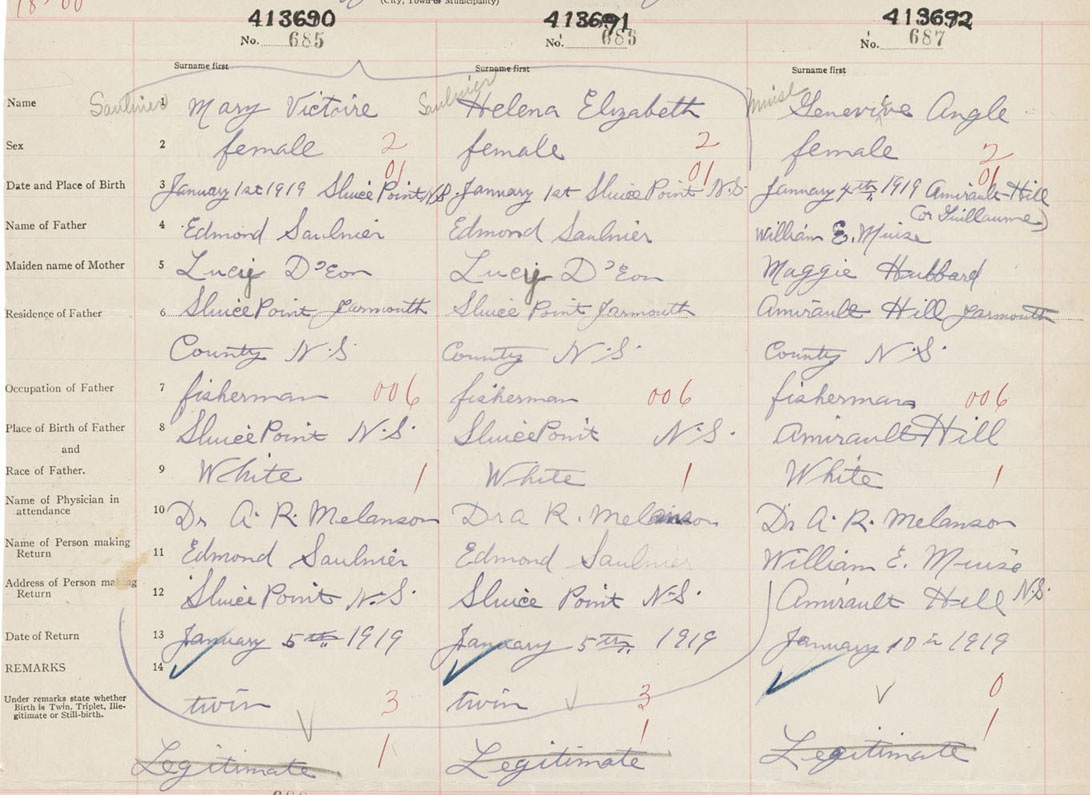 18-00
(City, Town or Municipality)
413690 413691 413692
No. 685 No. 686 No. 687
Surname first Surname first Surname first
Name 1 Saulnier Mary Victoire Saulnier Helena Elizabeth Muise Genevieve Angle
Sex 2 female 2 female 2 female 2
01 01 01
Date and Place of Birth 3 January 1st 1919 Sluice Point N.S. January 1st Sluice Point N.S. January 4th 1919 Amirault Hill
(or Guillaume)
Name of Father 4 Edmond Saulnier Edmond Saulnier William E. Muise
Maiden name of Mother 5 Lucy D'Eon Lucy D'Eon Maggie Hubbard
Residence of Father 6 Sluice Point Yarmouth Sluice Point Yarmouth Amirault Hill Yarmouth
County N.S. County N.S. County N.S.
Occupation of Father 7 fisherman 006 fisherman 006 fisherman 006
Place of Birth of Father 8 Sluice Point N.S. Sluice Point N.S. Amirault Hill
and
Race of Father. 9 White 1 White 1 White 1
Name of Physician in
attendance 10 Dr A. R. Melanson Dr A R. Melanson Dr A. R. Melanson
Name of Person making
Return 11 Edmond Saulnier Edmond Saulnier William E. Muise
Address of Person making
Return 12 Sluice Point N.S. Sluice Point N.S. Amirault Hill N.S.
Date of Return 13 January 5th 1919 January 5th 1919 January 10th 1919
REMARKS 14
Under remarks state whether
Birth is Twin, Triplet, Ille-
gitimate or Still-birth.
twin 3 twin 3 0
1 1 1
Legitimate Legitimate Legitimate